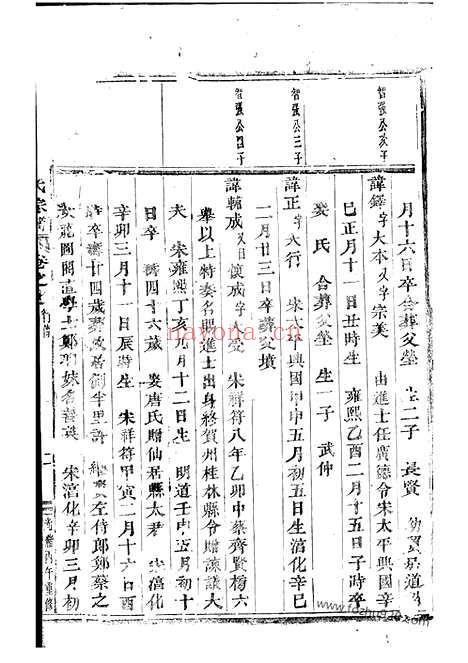 智強公次子
月十六日卒合葬父塋 生二子 長賢 幼
諱鐸字大本又字宗美 由進士任廣德令宋太平興國辛
巳正月十一日丑時生 雍熙乙酉二月十五日子時卒
娶氏 合葬父塋 生一子 武仲
智強公三子
諱正字大行 宋太平興國甲申五月初五日生淳化辛巳
二月廿三日卒葬父墳
智強公四子
諱輔成又曰懷成字 宋祥符八年乙卯中蔡齊賢榜六
舉以上特奏名賜進士出身終賀州桂林縣令贈諫議大
夫 宋雍熙丁亥八月十二日生 明道壬申五月初十
日卒 壽四十六歲 娶唐氏贈仙居縣太君 淳化
辛卯三月十一日辰時生 宋祥符甲寅二月十六日酉
時卒壽廿四歲葬故居側半里許 繼娶左侍郎鄭蔡之
女龍圖閣直學士鄭 妹 宋淳化辛卯三月初
氏宗譜 卷之
丙午重修
nayona.cn
www.fozhu920.com